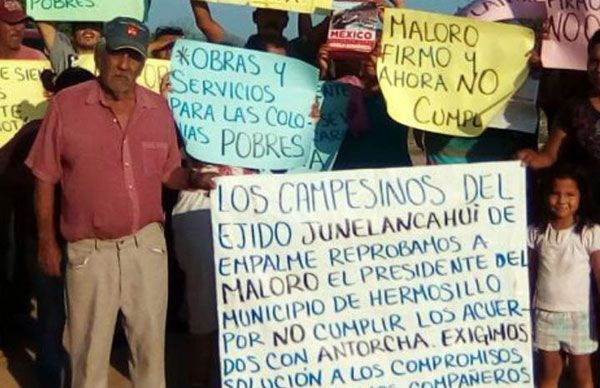 POBRES.
*OBRAS Y
SERVICIOS
PARA LAS COLO
NIAS POBRES
MÉXICO
MALORO
FIRMO Y
AHORA NO
CUMPL
LOS CAMPESINOS DEL
EJIDO JUNELANCAHUI DE
EMPALME REPROBAMOS A
MALORO EL PRESIDENTE DEL
MUNICIPIO DE HERMOSILLO
POR NO CUMPLIR LOS ACUER-
DOS CON ANTORCHA. EXIGIMOS
SOLUCIÓN A LOS COMPROMISOS
COMPAÑEROS